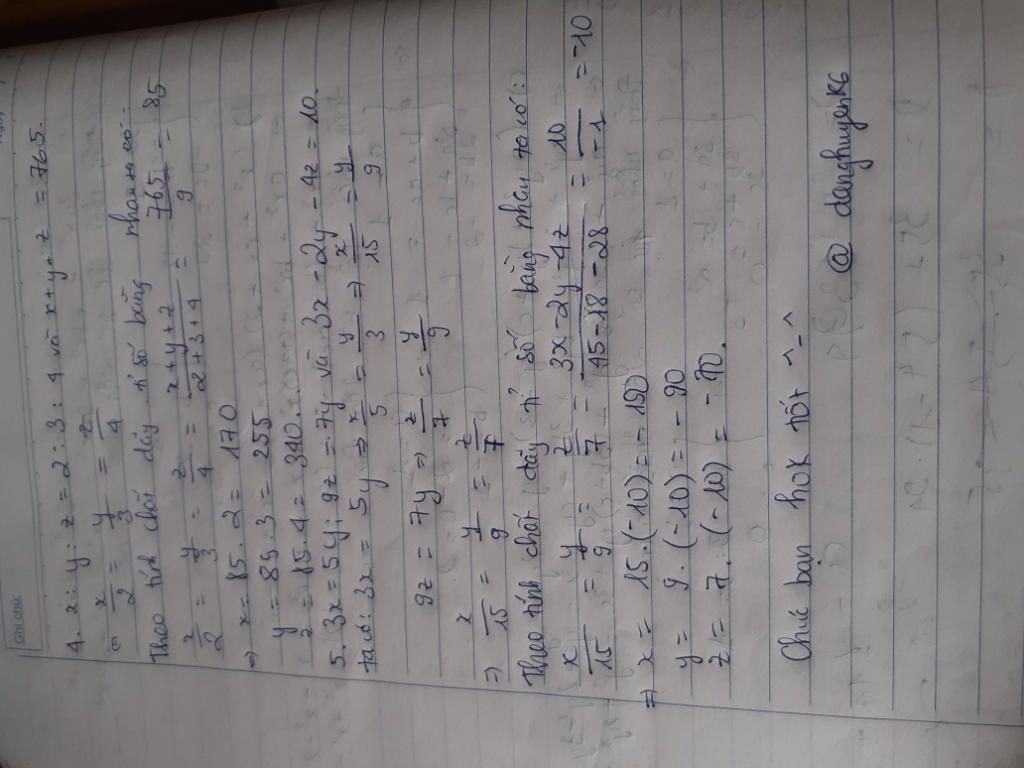 Ghi chú:
4. x : y : z = 2 : 3 : 4 và x + y + z = 765.
x/2 = y/3 = z/4
Theo tính chất dãy tỉ số bằng nhau ta có:
x/2 = y/3 = z/4 = x+y+z/2+3+4 = 765/9 = 85
⇒ x = 85.2 = 170
y = 85.3 = 255
z = 85.4 = 340.
5. 3x = 5y; 9z = 7y và 3x - 2y - 4z = 10.
ta có: 3x = 5y ⇒ x/5 = y/3 ⇒ x/15 = y/9
9z = 7y ⇒ z/7 = y/9
⇒ x/15 = y/9 = z/7
Theo tính chất dãy tỉ số bằng nhau ta có:
x/15 = y/9 = z/7 = 3x-2y-4z/45-18-28 = 10/-1 = -10
⇒ x = 15.(-10) = -150
y = 9.(-10) = -90
z = 7.(-10) = -70.
Chúc bạn hok tốt ^-^
@ danghuyenK6